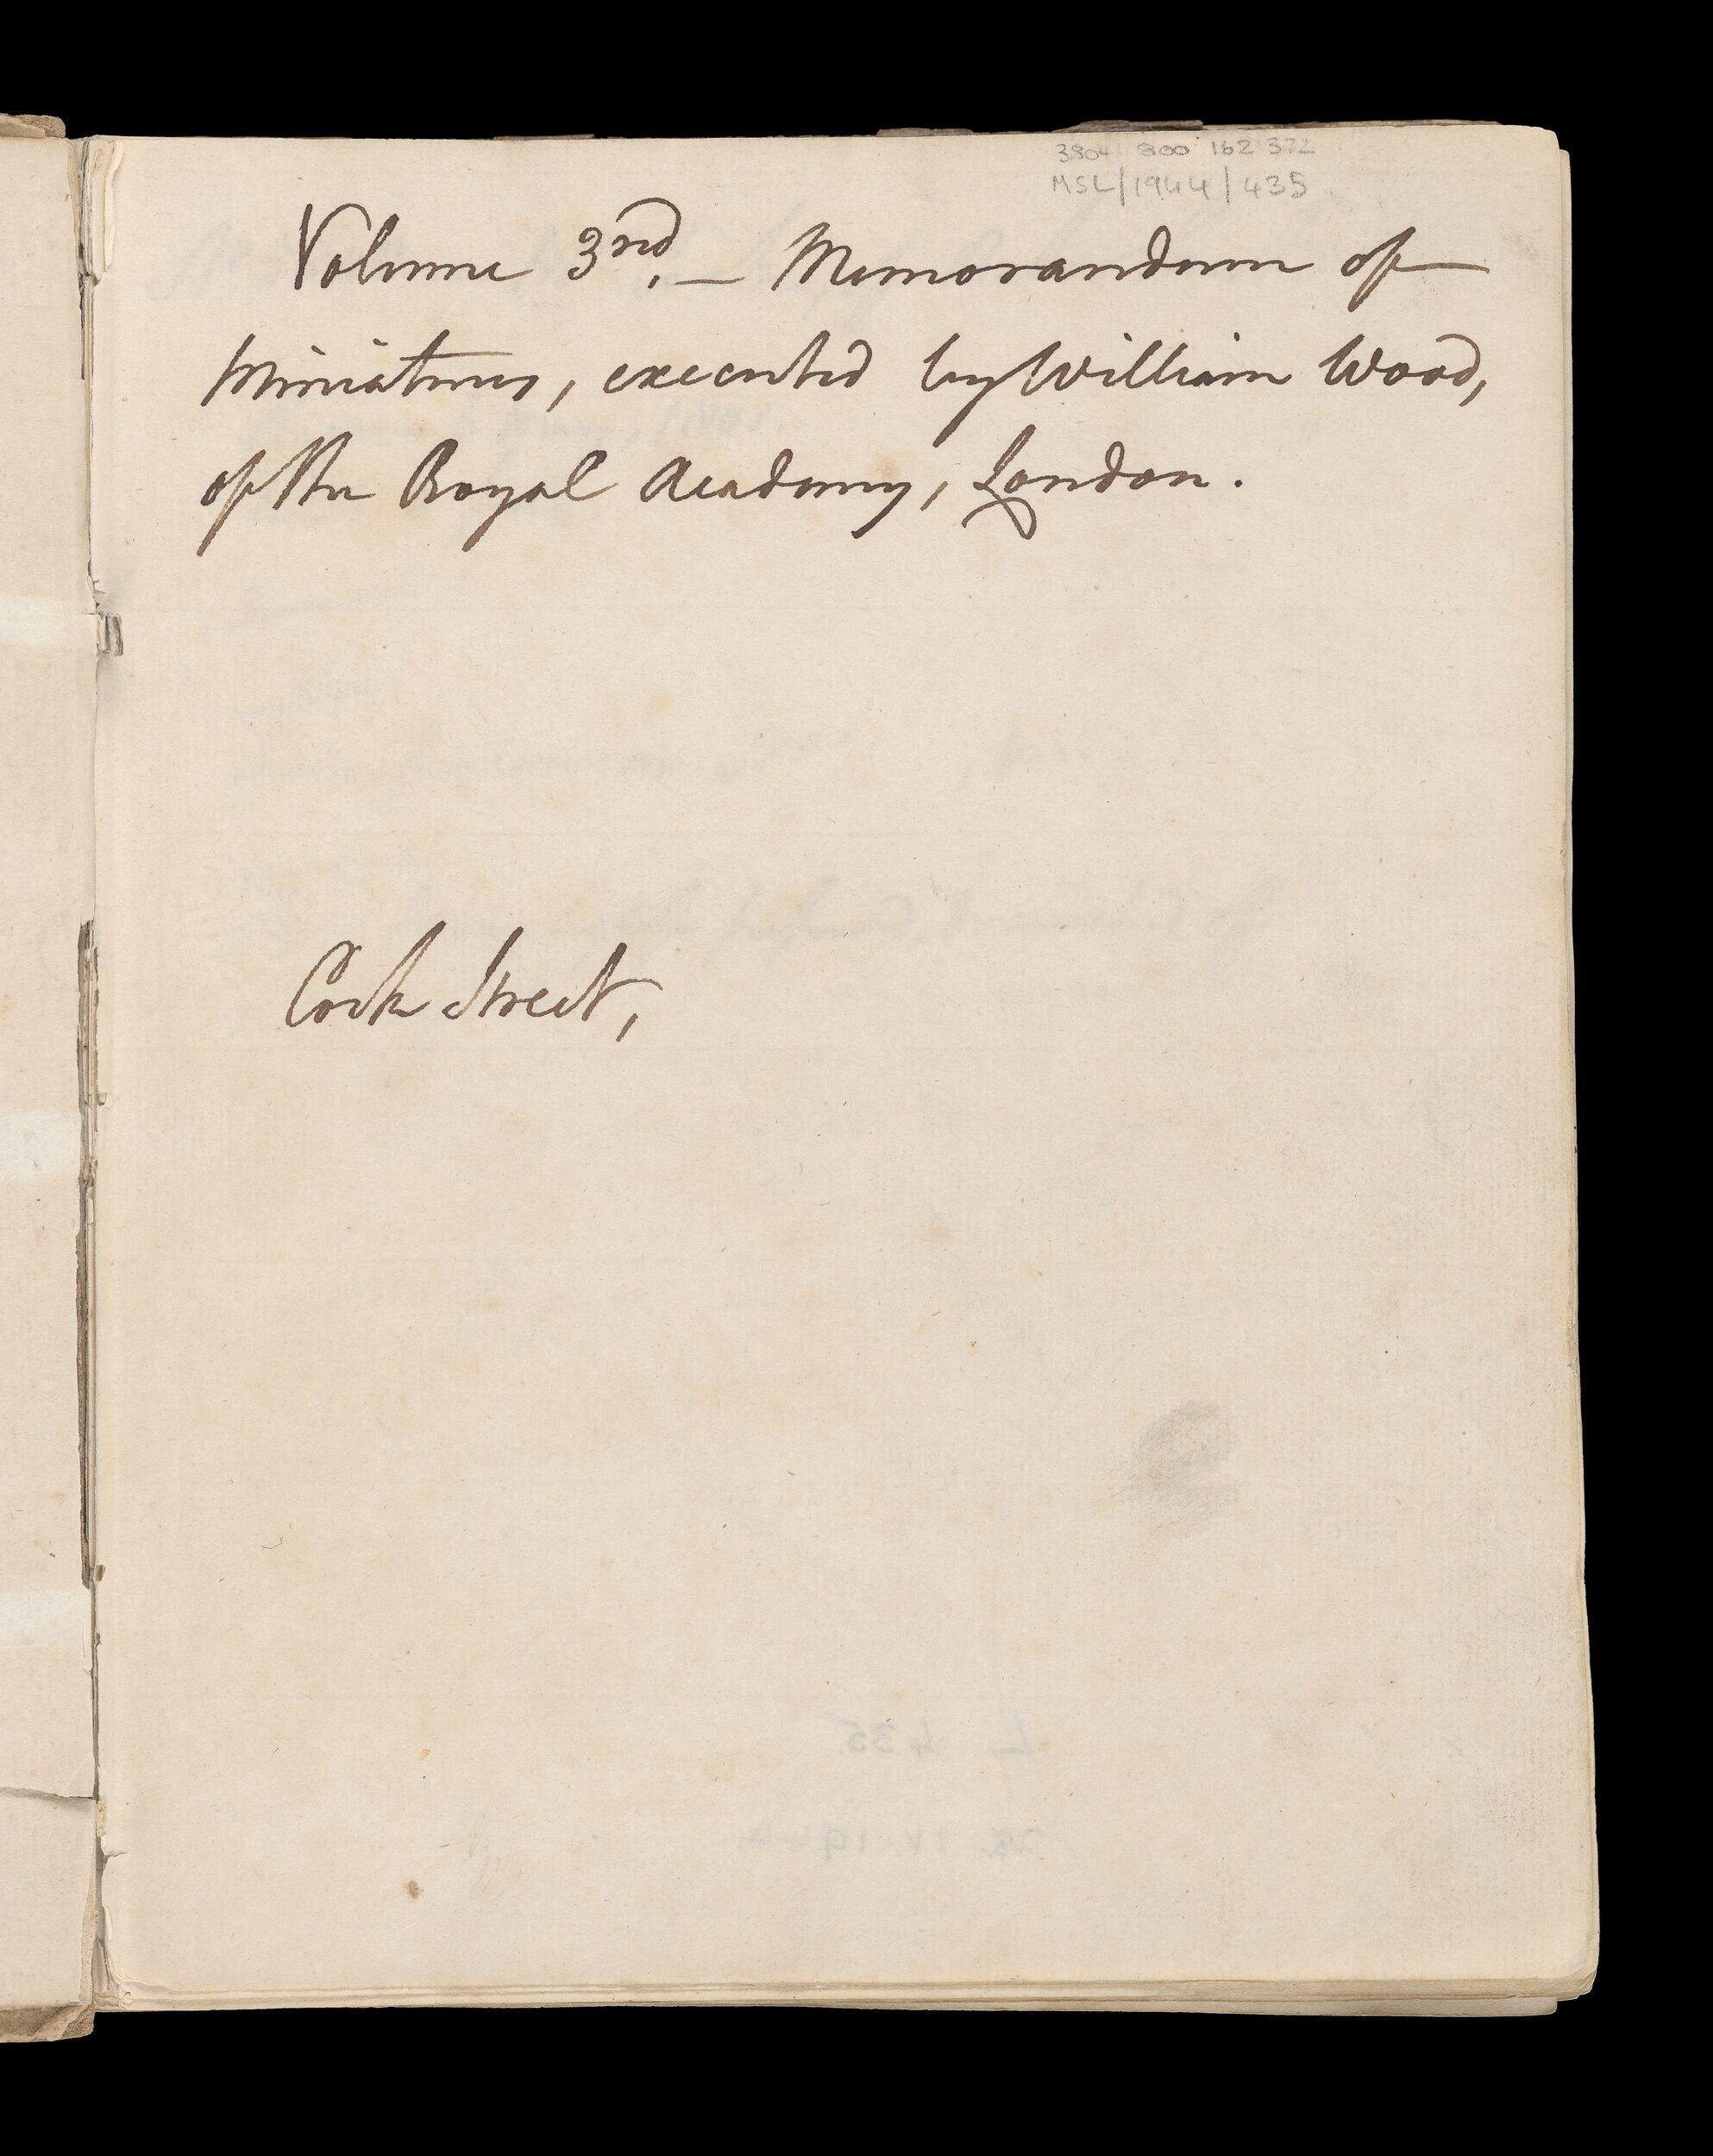 3804 800 162 372
MSL/1944/435
Volume 3rd. — Memorandum of
Miniatures, executed by William Wood,
of the Royal Academy, London.
Cork Street,
L 435
IV 194